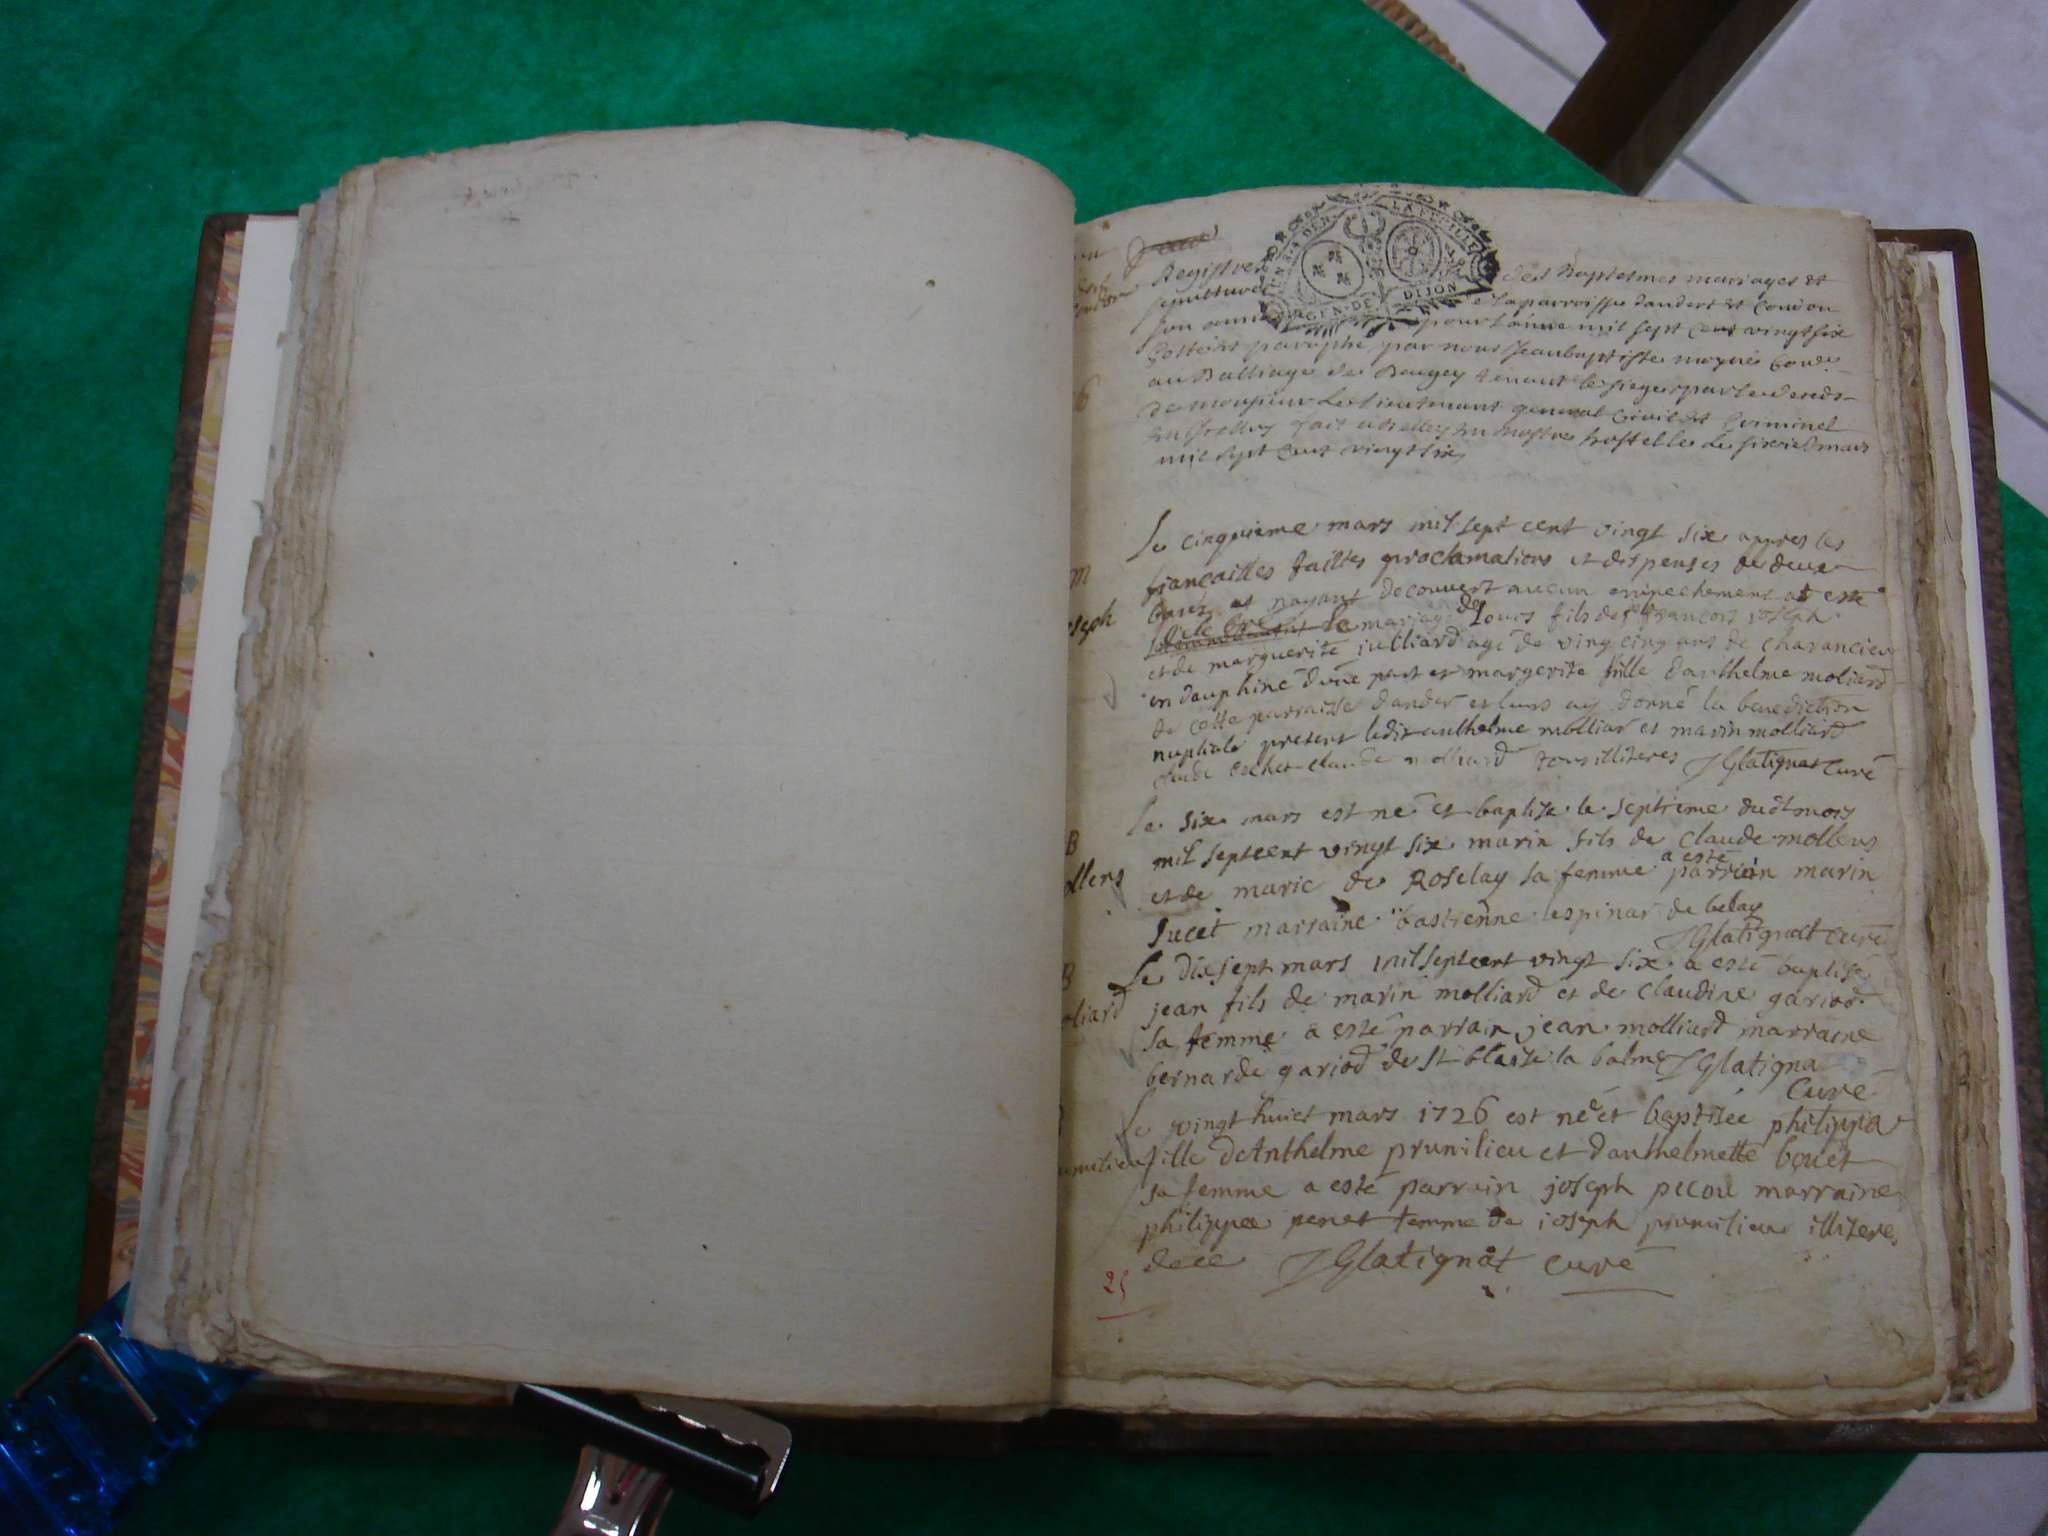 GEN.DE.DIJON
LA FEUILLE
Registre des Baptesmes mariages et
sepultures de la parroisse dandert et Condon
son annexe pour l'année mil sept cent vingt six
paraphé par nous Jean baptiste
au Balliage de Beugey tenant le siege
de monsieur Le Lieutenant general Civil et Criminel
fait a Belley en nostre hostel le sixie mars
mil sept cent vingt six
m
oseph
Le cinquieme mars mil sept cent vingt six appres les
fiançailles faittes proclamations et dispenses de deux
bans et nayant decouvert aucun empechement at esté
mariage de Louis fils de françois joseph
et de marguerite julliard agé de ving cinq ans de charancieu
en dauphiné dune part et margerite fille danthelme moliard
de cette parroisse dander et leurs ay donné la benediction
nuptiale present ledit anthelme molliar et marin molliard
claude molliard tous illiteres J Glatignat curé
B
ollens
Le six mars est né et baptise le septieme dudt mois
mil septcent vingt six marin fils de claude mollens
et de marie de Roselay sa femme a esté parrain marin
Sucet marraine bastienne espinar de belay
J Glatignat curé
B
oliard
Le dixsept mars mil septcent vingt six a esté baptisé
jean fils de marin molliard et de claudine gariod
sa femme a esté parrain jean molliard marraine
bernarde gariod de st blaise la balme J Glatigna
curé
umilieu
Le vingt huict mars 1726 est née et baptisée philippa
fille deAnthelme prumilieu et danthelmette bouet
sa femme a esté parrain joseph pecou marraine
philippee penet femme de joseph prumilieu illitere
dece J Glatignat curé
25